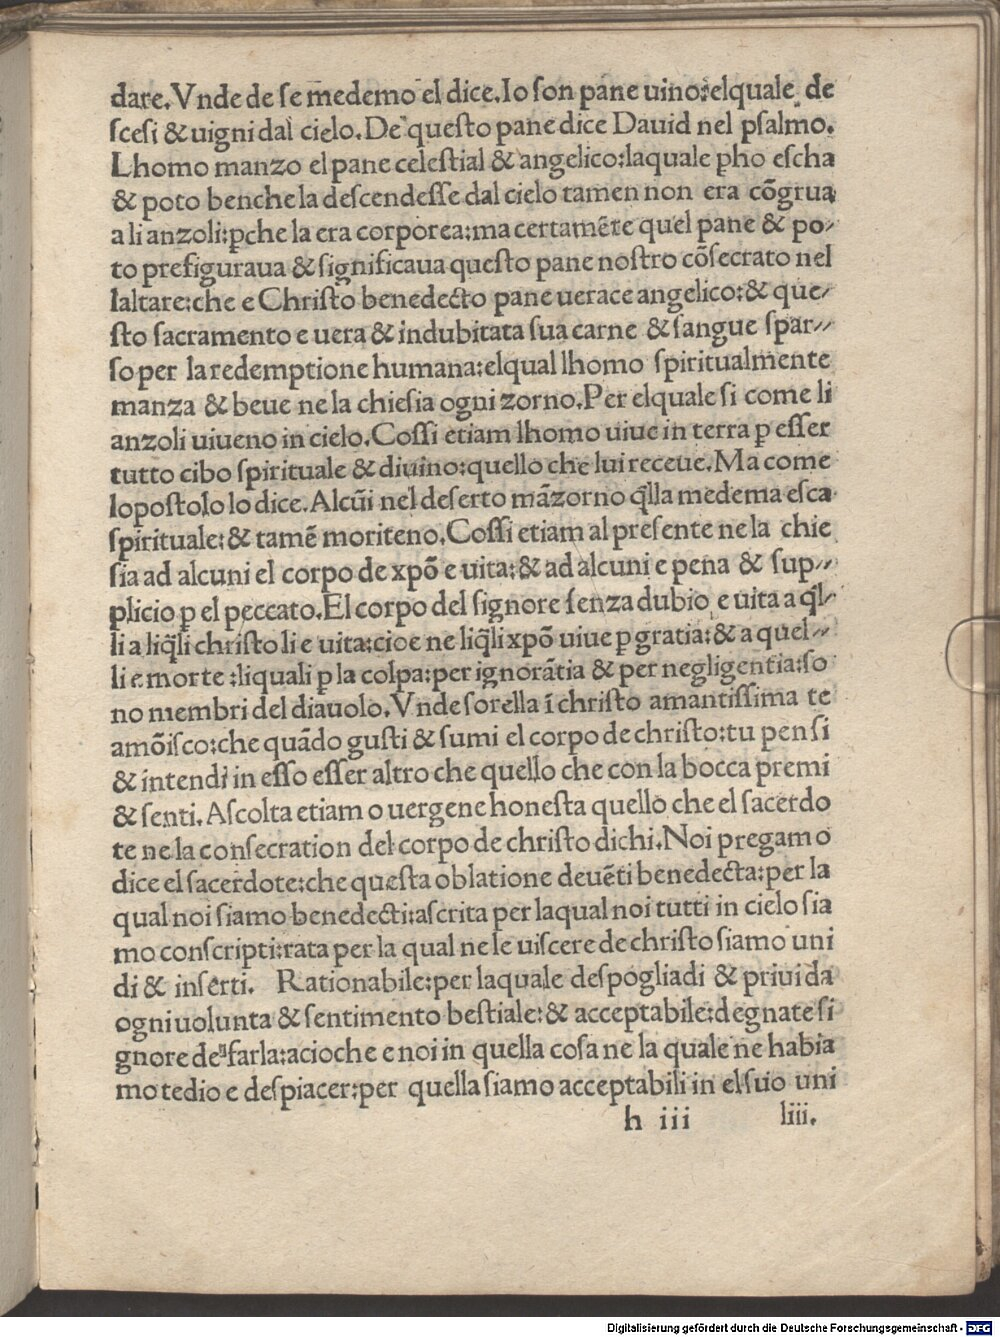 dare.Vnde de se medemo el dice.Io son pane uiuo:elquale de
scesi & uigni dal cielo.De questo pane dice Dauid nel psalmo.
Lhomo manzo el pane celestial & angelico:laquale pho escha
& poto benche la descendesse dal cielo tamen non era cõgrua
a li anzoli:pche la era corporea:ma certamẽte quel pane & po-
to prefiguraua & significaua questo pane nostro cõsecrato nel
laltare:che e Christo benedecto pane uerace angelico:& que-
sto sacramento e uera & indubitata sua carne & sangue spar-
so per la redemptione humana:elqual lhomo spiritualmente
manza & beue ne la chiesia ogni zorno.Per elquale si come li
anzoli uiueno in cielo.Cossi etiam lhomo uiue in terra p esser
tutto cibo spirituale & diuino:quello che lui receue.Ma come
lopostolo lo dice.Alcũi nel deserto mãzorno q̃lla medema esca
spirituale:& tamẽ moriteno.Cossi etiam al presente ne la chie
sia ad alcuni el corpo de xpõ e uita:& ad alcuni e pena & sup-
plicio p el peccato.El corpo del signore senza dubio e uita a q̃l-
li a liq̃li christo li e uita:cioe ne liq̃li xpõ uiue p gratia:& a quel-
li e morte:liquali p la colpa:per ignorãtia & per negligentia:so
no membri del diauolo.Vnde sorella ĩ christo amantissima te
amõisco:che quãdo gusti & sumi el corpo de christo:tu pensi
& intendi in esso esser altro che quello che con la bocca premi
& senti.Ascolta etiam o uergene honesta quello che el sacerdo
te ne la consecration del corpo de christo dichi.Noi pregamo
dice el sacerdote:che questa oblatione deuẽti benedecta:per la
qual noi siamo benedecti:ascrita per laqual noi tutti in cielo sia
mo conscripti:rata per la qual ne le uiscere de christo siamo uni
di & inserti. Rationabile:per laquale despogliadi & priui da
ogni uolunta & sentimento bestiale:& acceptabile:degnate si
gnore de farla:acioche e noi in quella cosa ne la quale ne habia
mo tedio e despiacer:per quella siamo acceptabili in el suo uni
h iii liii.
Digitalisierung gefördert durch die Deutsche Forschungsgemeinschaft - DFG